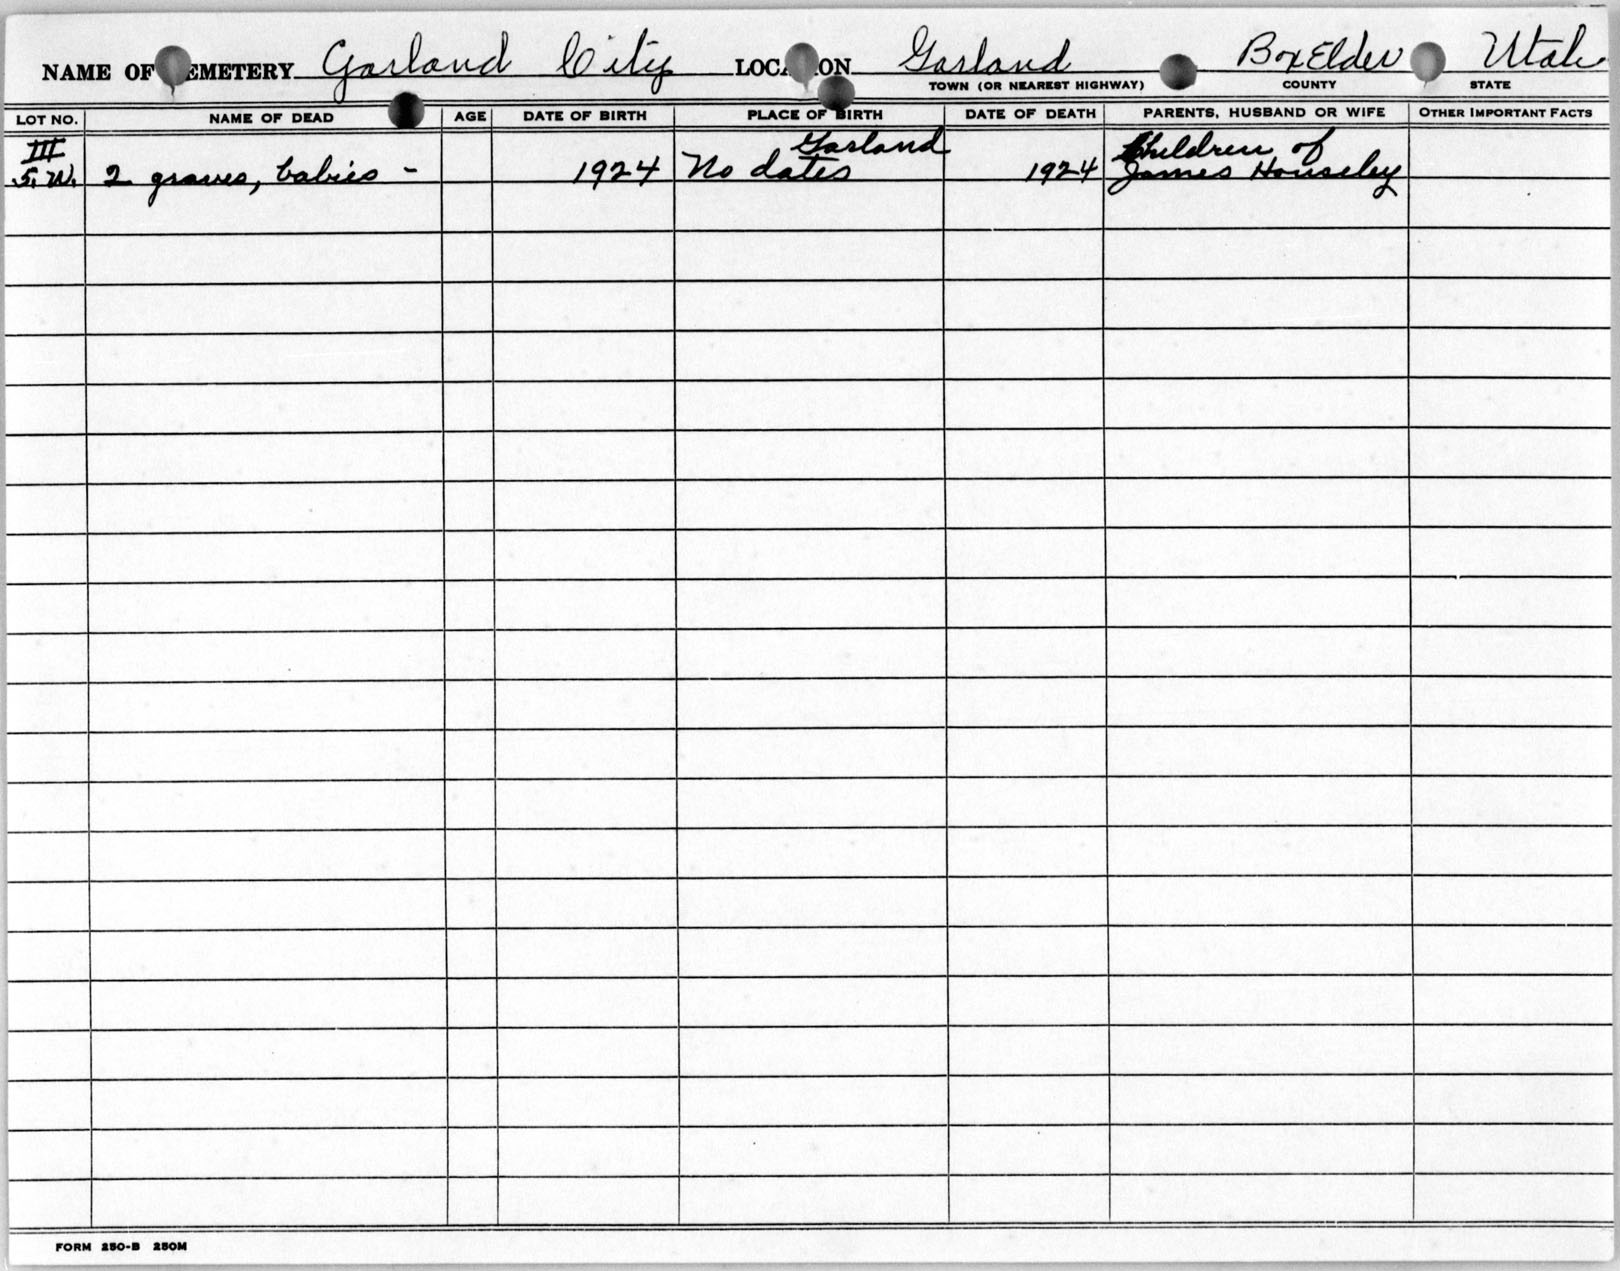 NAME OF CEMETERY Garland City LOCATION Garland Box Elder Utah
TOWN (OR NEAREST HIGHWAY) COUNTY STATE
LOT NO. NAME OF DEAD AGE DATE OF BIRTH PLACE OF BIRTH DATE OF DEATH PARENTS, HUSBAND OR WIFE OTHER IMPORTANT FACTS
III Garland Children of
S.W. 2 graves, babies - 1924 No dates 1924 James Houseley
FORM 250-B 250M